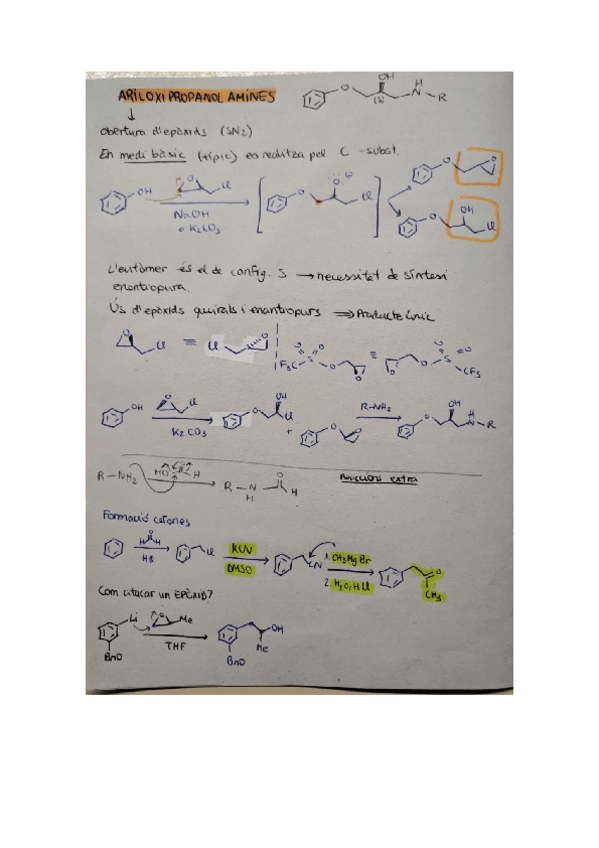 ARILOXIPROPANOLAMINES
OH
O
(S)
H
N
R
obertura d'epòxids (SN2)
En medi bàsic (típic) es realitza pel C -subst.
OH
O
Cl
NaOH
o K2CO3
O
O
⊖
Cl
O
O
O
OH
Cl
L'eutòmer és el de config. S → necessitat de síntesi
enantiopura.
Ús d'epòxids quirals i enantiopurs ⇒ Producte únic
O
Cl
≡
Cl
O
F3C
S
O
O
O
O
≡
O
O
S
O
O
CF3
OH
O
Cl
K2CO3
O
OH
Cl
+
O
O
R-NH2
O
OH
H
N
R
R-NH2
HO
O
H
R-N
H
O
H
Reaccions extra
Formació cetones
O
H H
HCl
Cl
KCN
DMSO
CN
1. CH3MgBr
2. H2O, HCl
O
CH3
Com atacar un EPÒXID?
Li
BnO
O
Me
THF
OH
Me
BnO